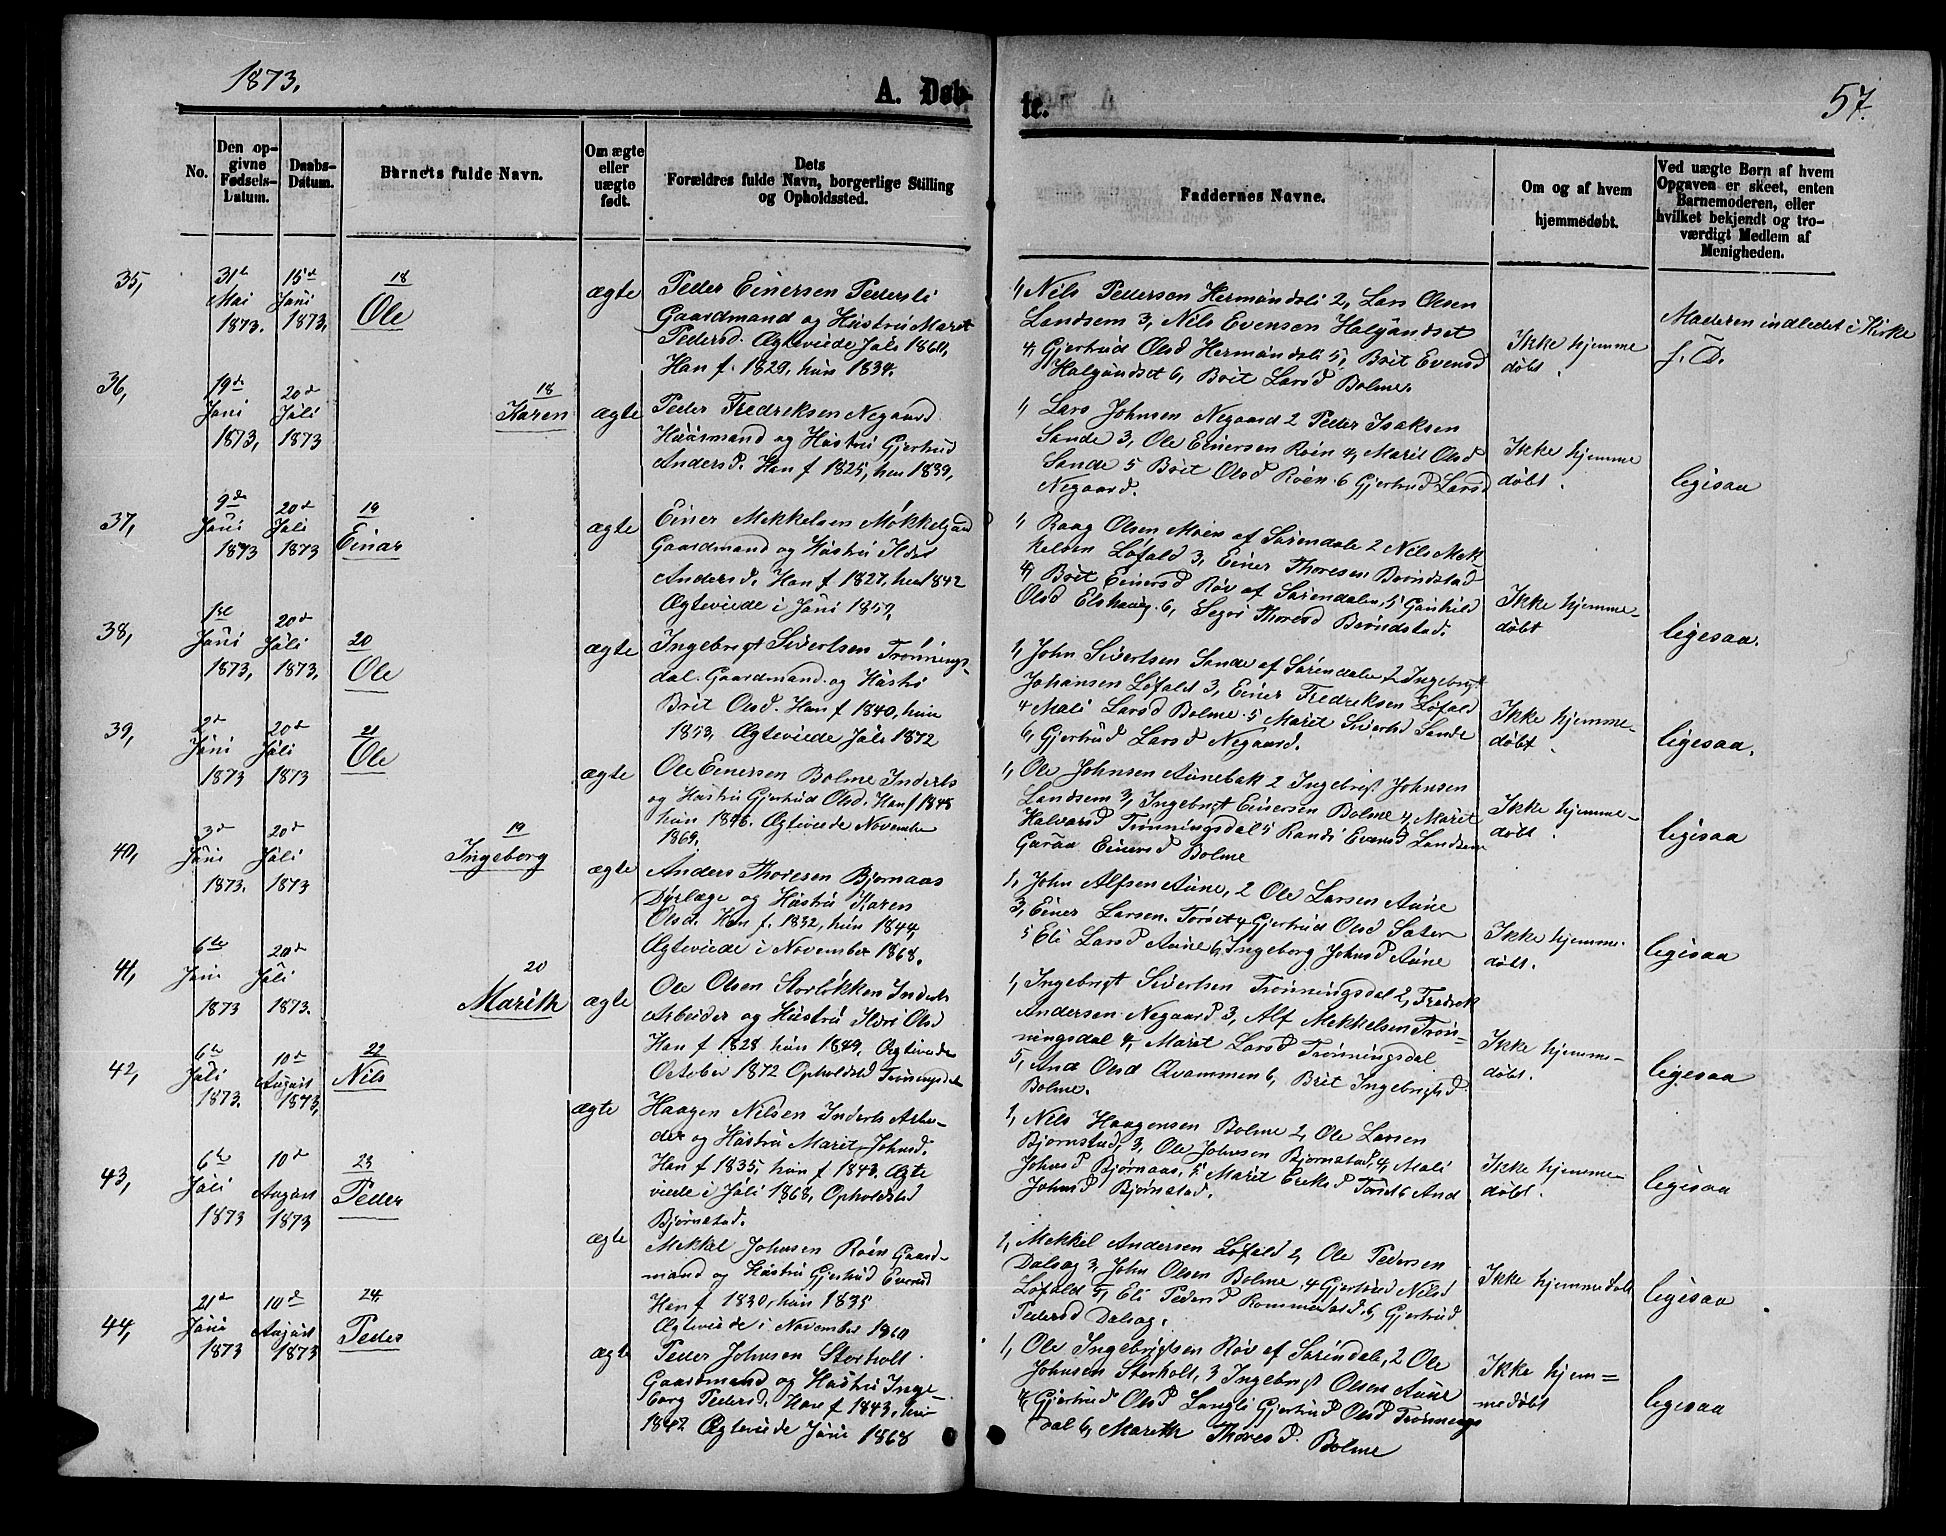 1873.
A. Døb-
te.
57.
No.
Den op-
givne
Fødsels-
Datum.
Daabs-
Datum.
Barnets fulde Navn.
Om ægte
eller
uægte
født.
Dets
Forældres fulde Navn, borgerlige Stilling
og Opholdssted.
Faddernes Navne.
Om og af hvem
hjemmedøbt.
Ved uægte Børn af hvem
Opgaven er skeet, enten
Barnemoderen, eller
hvilket bekjendt og tro-
værdigt Medlem af
Menigheden.
35,
31te
Mai
1873.
15de
Juni
1873,
18
Ole
ægte
Peder Einersen Pedersli
Gaardmand og Hustru Marit
Pedersd. Ægteviede Juli 1860,
Han f. 1829, hun 1834.
1, Nils Pedersen Hermundsli 2, Lars Olsen
Landsem 3, Nils Evensen Halgundset
4, Gjertrud Olsd Hermundsli 5, Brit Evensd
Halgundset 6, Brit Larsd Bolme.
Ikke hjemme
døbt.
Moderen indledet i Kirke
f. D.
36,
19de
Juni
1873,
20de
Juli
1873
18
Karen
ægte
Peder Fredriksen Negaard
Huusmand og Hustru Gjertrud
Andersd. Han f 1825, hun 1839,
1, Lars Johnsen Negaard 2 Peder Isaksen
Sande 3, Ole Einersen Røen 4, Marit Olsd
Sande 5 Brit Olsd Røen 6 Gjertrud Larsd
Negaard.
Ikke hjemme
døbt.
ligesaa
37,
9de
Juni
1873
20de
Juli
1873
19
Einar
ægte
Einer Mekkelsen Møkkelgaard
Gaardmand og Hustru Ildri
Andersd. Han f 1827, hun 1842
Ægteviede i Juni 1859,
1, Raag Olsen Moen af Surendalen 2 Nils Mek-
kelsen Løfald 3, Einer Thoresen Brøndstad
4, Brit Einersd Røv af Surendalen, 5 Gunhild
Olsd Elshaug 6, Segri Thoresd Brøndstad.
Ikke hjemme-
døbt
ligesaa.
38,
1ste
Juni
1873,
20de
Juli
1873,
20
Ole
ægte
Ingebrigt Sivertsen Trønnings-
dal. Gaardmand og Hustru
Brit Olsd. Han f 1840, hun
1853, Ægteviede, Juli 1872
1, John Sivertsen Sande af Surendalen 2 Ingebrigt
Johansen Løfald 3, Einer Fredriksen Løfald
4 Mali Larsd Bolme 5 Marit Sivertsd Sande
6, Gjertrud Larsd Negaard.
Ikke hjemme-
døbt.
ligesaa,
39,
2de
Juni
1873
20de
Juli
1873
21
Ole
ægte
Ole Einersen Bolme Inderts
og Hustru Gjertrud Olsd. Han f 1845
hun 1846. Ægteviede November
1869,
1, Ole Johnsen Aunebak 2 Ingebrigt Johnsen
Landsem 3, Ingebrigt Einersen Bolme 4, Marit
Halvarsd Trønningsdal 5 Randi Evensd Landsem
Guraa Einersd Bolme
Ikke hjemme-
døbt.
ligesaa
40,
3de
Juni
1873.
20de
Juli
1873
19
Ingeborg
ægte
Anders Thoresen Bjørnaas
Dyrlæge og Hustru Karen
Olsd. Han f. 1832, hun 1844,
Ægteviede i November 1868.
1, John Alfsen Aune, 2 Ole Larsen Aune
3, Einer Larsen Tørset 4 Gjertrud Olsd Sæter
5 Eli Larsd Aune 6, Ingeborg Johnsd Aune
Ikke hjemme-
døbt.
ligesaa
41,
6te
Juni
1873
20de
Juli
1873.
20
Marith
ægte
Ole Olsen Storløkken Inderts
Arbeider og Hustru Ildri Olsd
Han f 1828 hun 1849, Ægteviede
October 1872 Opholdsted Trønningsdal
1, Ingebrigt Sivertsen Trønningsdal 2, Fredrik
Andersen Negaard 3, Alf Mekkelsen Trøn-
ningsdal 4, Marit Larsd Trønningsdal
5, And Olsd Qvammen 6, Brit Ingebrigtsd
Bolme.
Ikke hjemme-
døbt.
ligesaa
42,
6te
Juli
1873.
10de
August
1873,
22
Nils
ægte
Haagen Nilsen Inderts Arbe-
der og Hustru Marit Johnsd.
Han f 1835, hun f 1843. Ægte
viede i Juli 1868, Opholdsted
Bjørnstad.
1, Nils Haagensen Bolme 2, Ole Larsen
Bjørnstad, 3, Ole Johnsen Bjørnstad, 4, Mali
Johnsd Bjørnaas, 5 Marit Eriksd 6 And
Johnsd Bjørnstad.
Ikke hjemme-
døbt.
ligesaa
43,
6te
Juli
1873
10de
August
1873
23
Peder
ægte
Mekkel Johnsen Røen Gaard-
mand og Hustru Gjertrud Evensd
Han f 1830, hun 1835
Ægteviede i November 1860
1, Mekkel Andersen Løfald 2, Ole Pedersen
Dalsag 3, John Olsen Bolme, 4 Gjertrud Nilsd
Løfald 5, Eli Pedersd Rommundstad, 6, Gjertrud
Pedersd Dalsag,
Ikke hjemmedøbt
ligesaa
44,
21de
Juni
1873
10de
August
1873
24.
Peder
ægte
Peder Johnsen Storholt
Gaardmand og Hustru Inge-
borg Pedersd. Han f 1843, hun
1842 Ægteviede Juni 1868
1, Ole Ingebrigtsen Røv af Surendale, 2 Ole
Johnsen Storholt, 3 Ingebrigt Olsen Aune
4, Gjertrud Olsd Langli Gjertrud Olsd Trønnings
dal 6, Marith Thoresd. Bolme
Ikke hjem=
medøbt
ligesaa